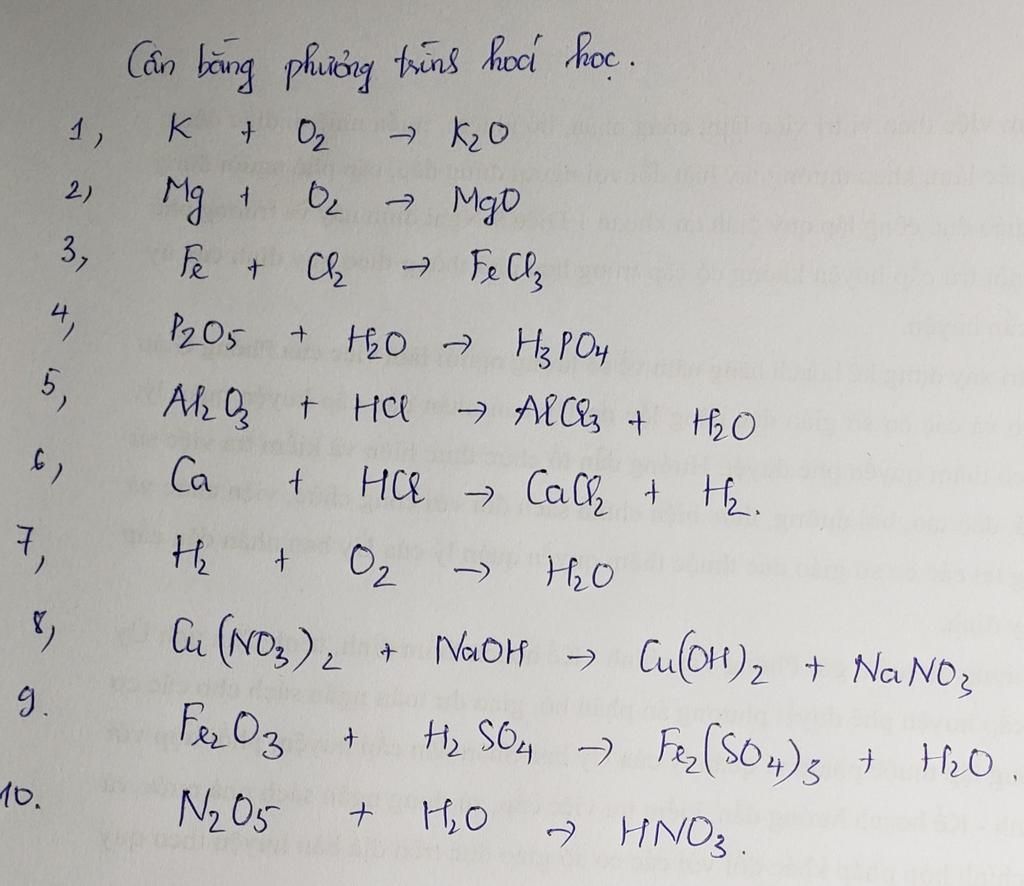 Cân bằng phương trình hoá học.
1, K + O2 → K2O
2, Mg + O2 → MgO
3, Fe + Cl2 → FeCl3
4, P2O5 + H2O → H3PO4
5, Al2O3 + HCl → AlCl3 + H2O
6, Ca + HCl → CaCl2 + H2.
7, H2 + O2 → H2O
8, Cu(NO3)2 + NaOH → Cu(OH)2 + NaNO3
9. Fe2O3 + H2SO4 → Fe2(SO4)3 + H2O.
10. N2O5 + H2O → HNO3.